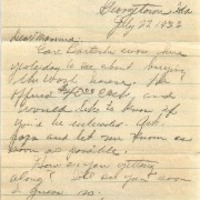 Georgetown, Ida
July 22 1932
Dear Mamma:
Carl Bartschi was here
yesterday to see about buying
the Wood house. He
offered cash and
would like to know if
you're interested. Ask
papa and let me know as
soon as possible.
How are you getting
along? We see you soon
I guess so.